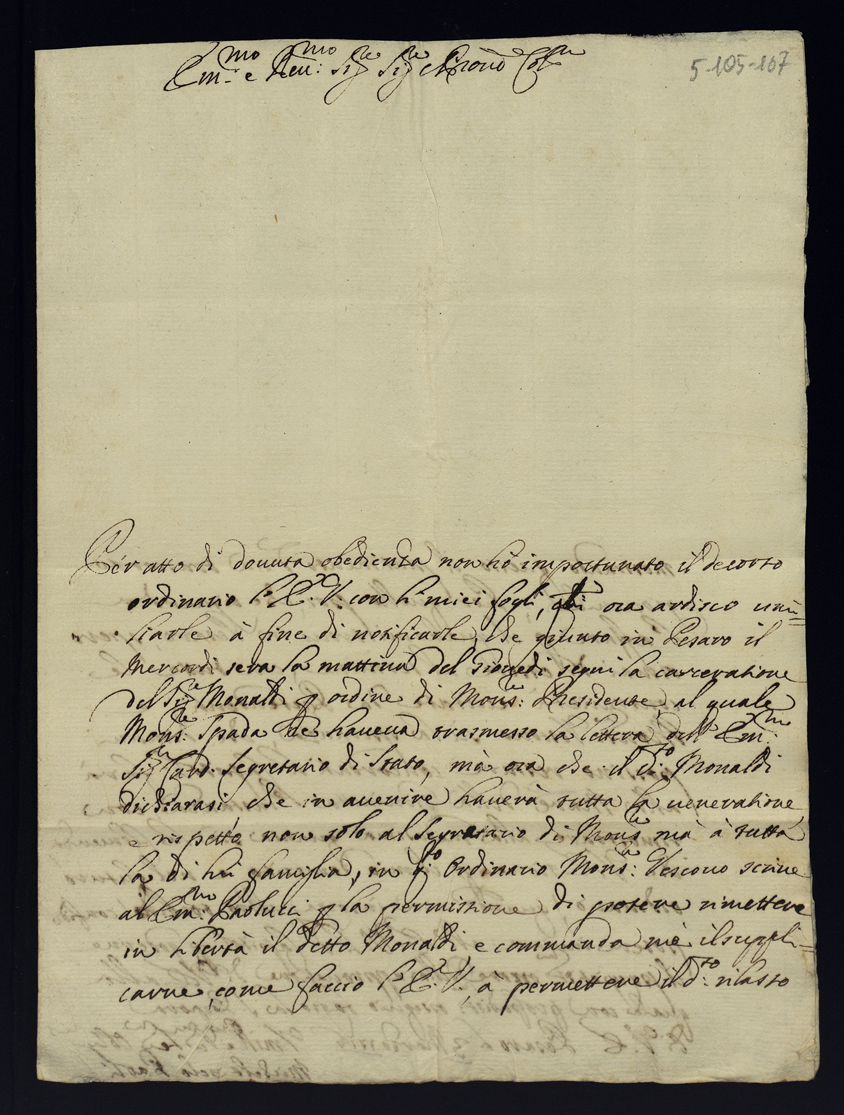 5-105-107
Em.mo e Reu:mo Sig.re Sig.re Pron.e Col.mo
Per atto di douuta obedienza non hò importunato il decorso
ordinario l'E.V. con li miei fogli, ora ardisco inui=
liarle à fine di notificarle, che giunto in Pesaro il
Mercordì sera la mattina del Giouedì seguì la carceratione
del Sig.re Monaldi p ordine di Mons.re Presidente, al quale
Mons.re Spada ne haueua trasmesso la lettera dell' Em.mo
Sig.r Card. Segretario di Stato, mà ora che il d.to Monaldi
dichiarasi che in auuenire hauerà tutta la ueneratione,
e rispetto non solo al Segretario di Mons.re mà à tutta
la di lui famiglia, in q.to Ordinario Mons.re Vescouo scriue
al Em.mo Paolucci p la permissione di potere rimettere
in libertà il detto Monaldi e commanda mè il suppli=
carne, come faccio l'E.V., à permettere il d.to rilasso